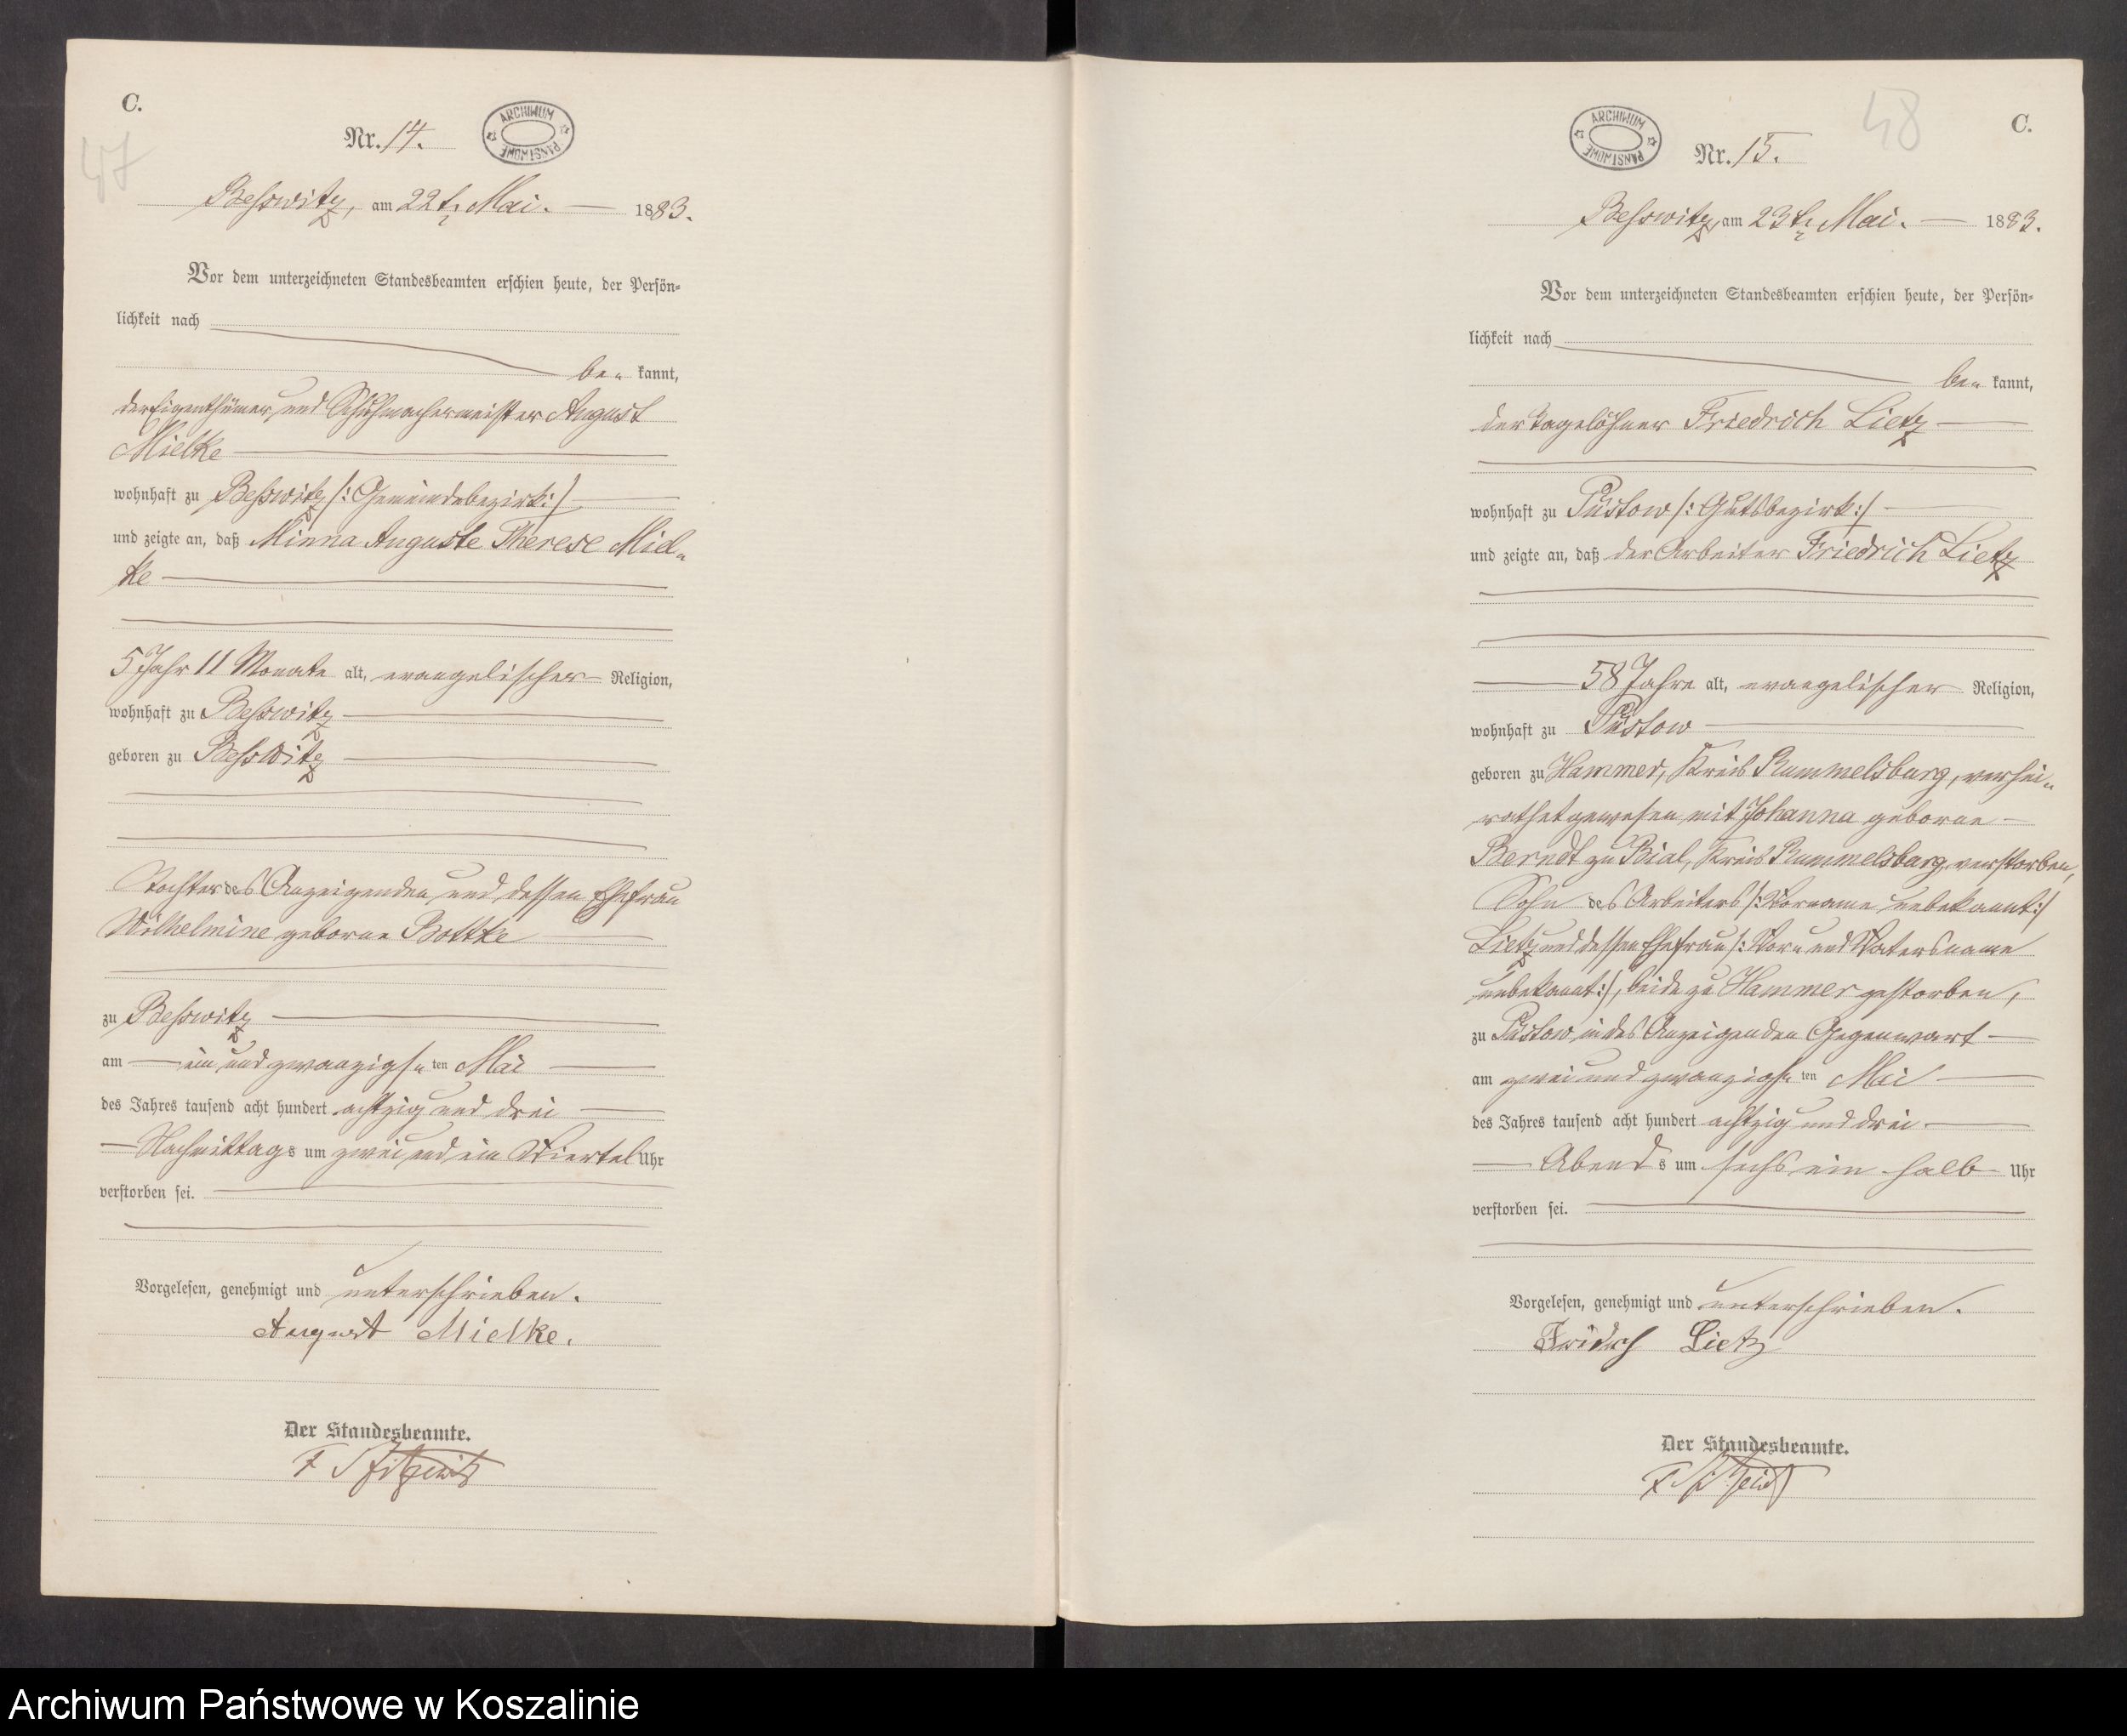 C.
47
Nr. 14.
ARCHIWUM PAŃSTWOWE
Besswitz, am 22t. Mai. 1883.
Vor dem unterzeichneten Standesbeamten erschien heute, der Persön-
lichkeit nach
be- kannt,
der Eigenthümer und Schuhmachermeister August
Mielke
wohnhaft zu Besswitz /: Gemeindebezirk :/
und zeigte an, daß Minna Auguste Therese Miel-
ke
5 Jahr 11 Monate alt, evangelischer Religion,
wohnhaft zu Besswitz
geboren zu Besswitz
Tochter des Anzeigenden und dessen Ehefrau
Wilhelmine geborne Bottke
zu Besswitz
am ein und zwanzigsten Mai
des Jahres tausend acht hundert achtzig und drei
Nachmittags um zwei und ein Viertel Uhr
verstorben sei.
Vorgelesen, genehmigt und unterschrieben.
August Mielke.
Der Standesbeamte.
48
C.
ARCHIWUM PAŃSTWOWE
Nr. 15.
Besswitz, am 23t. Mai. 1883.
Vor dem unterzeichneten Standesbeamten erschien heute, der Persön-
lichkeit nach
be- kannt,
der Tagelöhner Friedrich Lietz
wohnhaft zu Püstow /: Gutsbezirk :/
und zeigte an, daß der Arbeiter Friedrich Lietz
58 Jahre alt, evangelischer Religion,
wohnhaft zu Püstow
geboren zu Hammer, Kreis Rummelsburg, verhei-
rathet gewesen mit Johanna geborne
Berndt zu Bial, Kreis Rummelsburg, verstorben,
Sohn des Arbeiters /: Vorname unbekannt :/
Lietz und dessen Ehefrau /: Vor- und Vatersname
unbekannt :/, beide zu Hammer gestorben,
zu Püstow in des Anzeigenden Gegenwart
am zwei und zwanzigsten Mai
des Jahres tausend acht hundert achtzig und drei
Abends um sechs ein halb Uhr
verstorben sei.
Vorgelesen, genehmigt und unterschrieben.
Fridrch Lietz
Der Standesbeamte.
Archiwum Państwowe w Koszalinie